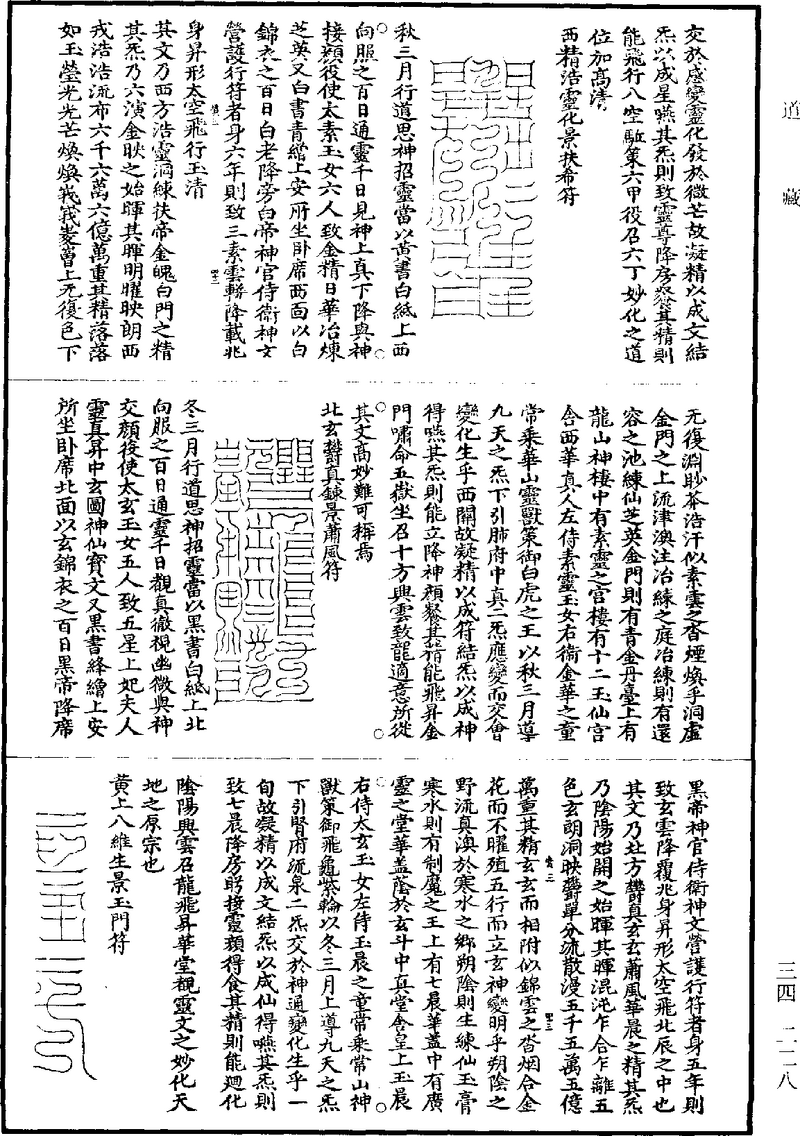 道藏
三四 二一八
交於感變靈化發於微芒故凝精以成文結
炁以成星嚥其炁則致靈尊降房飡其精則
能飛行八空驅策六甲役召六丁妙化之道
位加高清
西精浩靈化景扶希符
秋三月行道思神招靈當以黃書白紙上西
向服之百日通靈千日見神上真下降與神
接顏役使太素玉女六人致金精日華冶煉
芝英又白書青繒上安所坐卧席西面以白
錦衣之百日白老降旁白帝神官侍衛神文
營護行符者身六年則致三素雲軿降載兆
身昇形太空飛行玉清
其文乃西方浩靈洞練扶帝金魄白門之精
其炁乃六演金映之始暉其暉明曜映朗西
戎浩浩流布六千六萬六億萬重其精落落
如玉瑩光光芒煥煥峩峩崚嶒上无復色下
无復淵眇莽浩汗似素雲之沓煙煥乎洞虛
金門之上流津澳注冶練之庭冶練則有還
容之池練仙芝英金門則有青金丹臺上有
龍山神樓中有素靈之宮樓有十二玉仙宮
舍西華真人左侍素靈玉女右衛金華之童
常乘華山靈獸策御白虎之王以秋三月導
九天之炁下引肺府中真二炁應變而交會
變化生乎西關故凝精以成符結炁以成神
得嚥其炁則能立降神顏飡其精能飛昇金
門嘯命五嶽坐召十方興雲致龍適意所從
其文高妙難可稱焉
北玄欝真錬景蕭風符
冬三月行道思神招靈當以黑書白紙上北
向服之百日通靈千日覩真徹視幽微與神
交顏役使太玄玉女五人致五星上妃夫人
靈直昇中玄圖神仙寳文又黑書絳繒上安
所坐卧席北面以玄錦衣之百日黑帝降席
黑帝神官侍衛神文營護行符者身五年則
致玄雲降覆兆身昇形太空飛北辰之中也
其文乃北方欝真玄玄蕭風華晨之精其炁
乃陰陽始開之始暉其暉混沌乍合乍離五
色玄朗洞映欝單分流散漫五千五萬五億
萬重其精玄玄而相附似錦雲之沓烟合金
花而不曜殖五行而立玄神變明乎朔陰之
野流真澳於寒水之鄉朔陰則生練仙玉膏
寒水則有制魔之王上有七晨華蓋中有廣
靈之堂華蓋蔭於玄斗中真堂舍皇上玉晨
右侍太玄玉女左侍玉晨之童常乘常山神
獸策御飛龜紫輪以冬三月上導九天之炁
下引腎府流泉二炁交於神通變化生乎一
旬故凝精以成文結炁以成仙得嚥其炁則
致七晨降房眄接靈顏得食其精則能廻化
陰陽興雲召龍飛昇華堂覩靈文之妙化天
地之原宗也
黃上八維生景玉門符